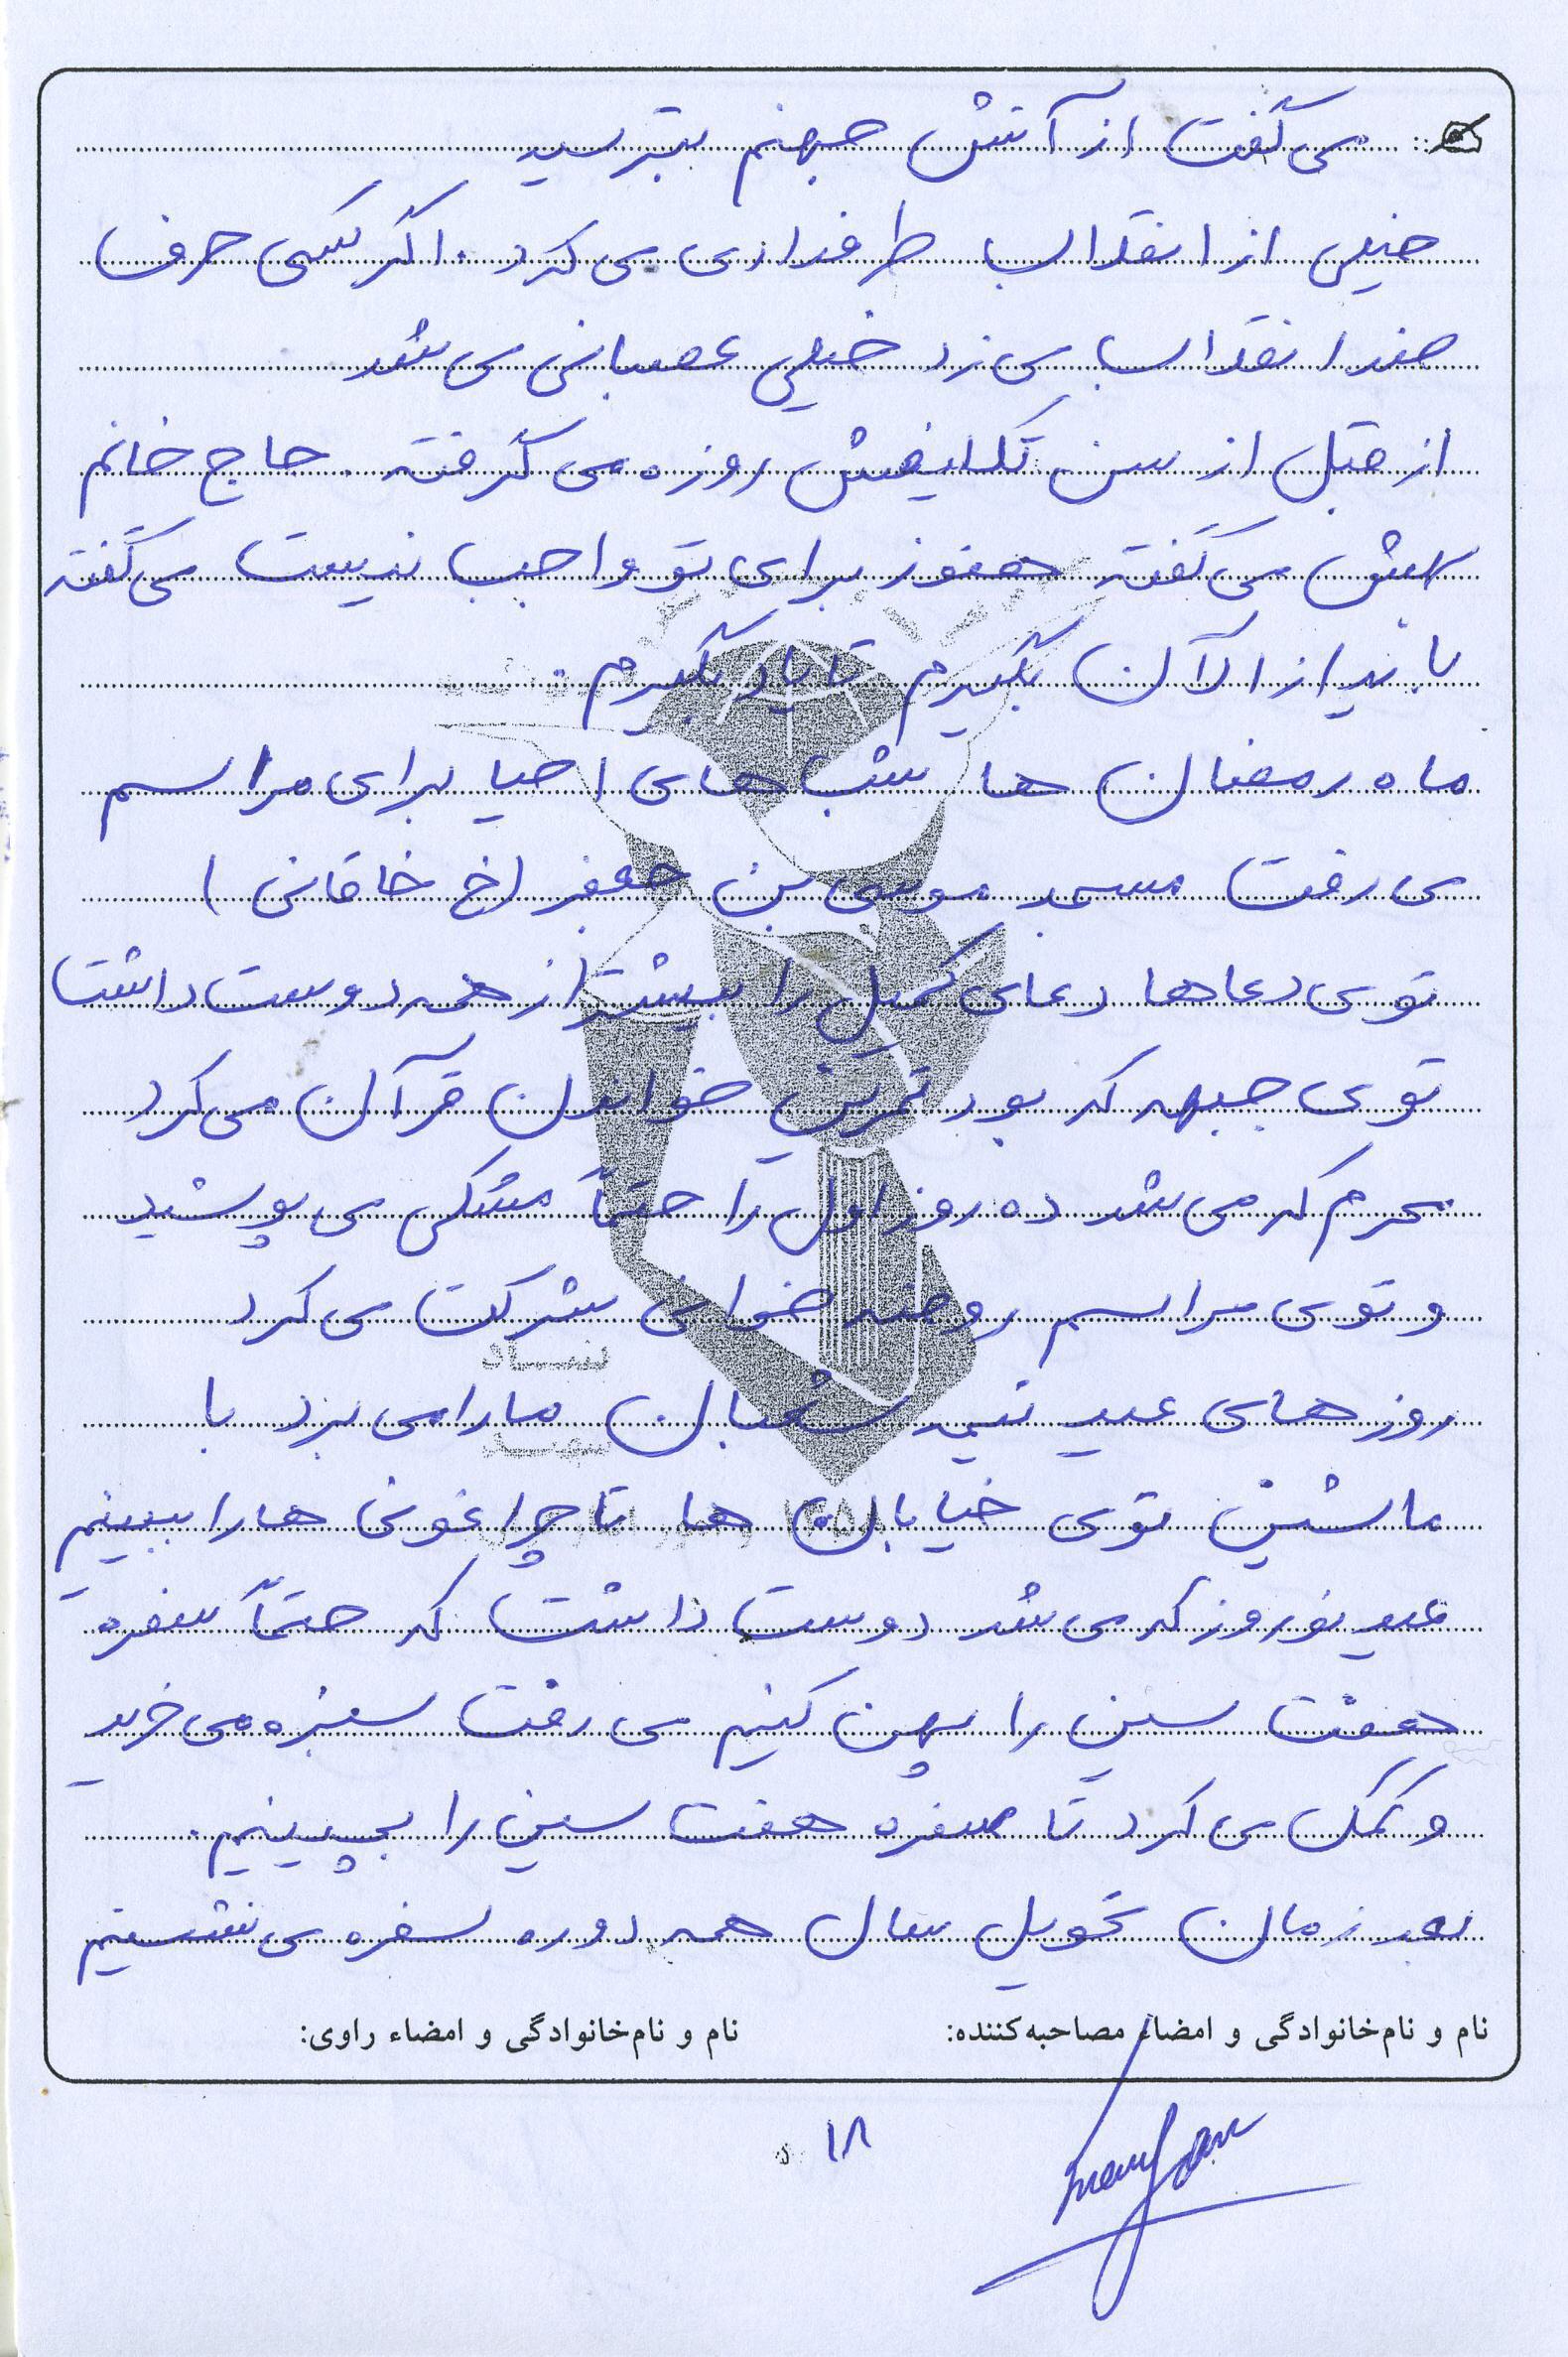 می گفت از آتش جهنم بترسید
خیلی از انقلاب طرفداری می کرد. اگر کسی حرف
ضد انقلاب می زد خیلی عصبانی می شد
از قبل از سن تکلیفش روزه می گرفته. حاج خانم
بهش می گفته هنوز برای تو واجب نیست می گفته
باید از الآن بگیرم تا یاد بگیرم.
ماه رمضان ها شب های احیا برای مراسم
می رفت مسجد موسی بن جعفر (خ خاقانی)
توی دعاها دعای کمیل را بیشتر از همه دوست داشت
توی جبهه که بود تمرین خواندن قرآن می کرد
محرم که می شد ده روز اول را حتماً مشکی می پوشید
و توی مراسم روضه خوانی شرکت می کرد
روزهای عید نیمه شعبان ما را می برد با
ماشین توی خیابان ها تا چراغونی ها را ببینیم
عید نوروز که می شد دوست داشت که حتماً سفره
هفت سین را پهن کنیم می رفت سبزه می خرید
و کمک می کرد تا سفره هفت سین را بچینیم.
بعد زمان تحویل سال همه دوره سفره می نشستیم
نام و نام‌خانوادگی و امضاء مصاحبه‌کننده: نام و نام‌خانوادگی و امضاء راوی:
۱۸